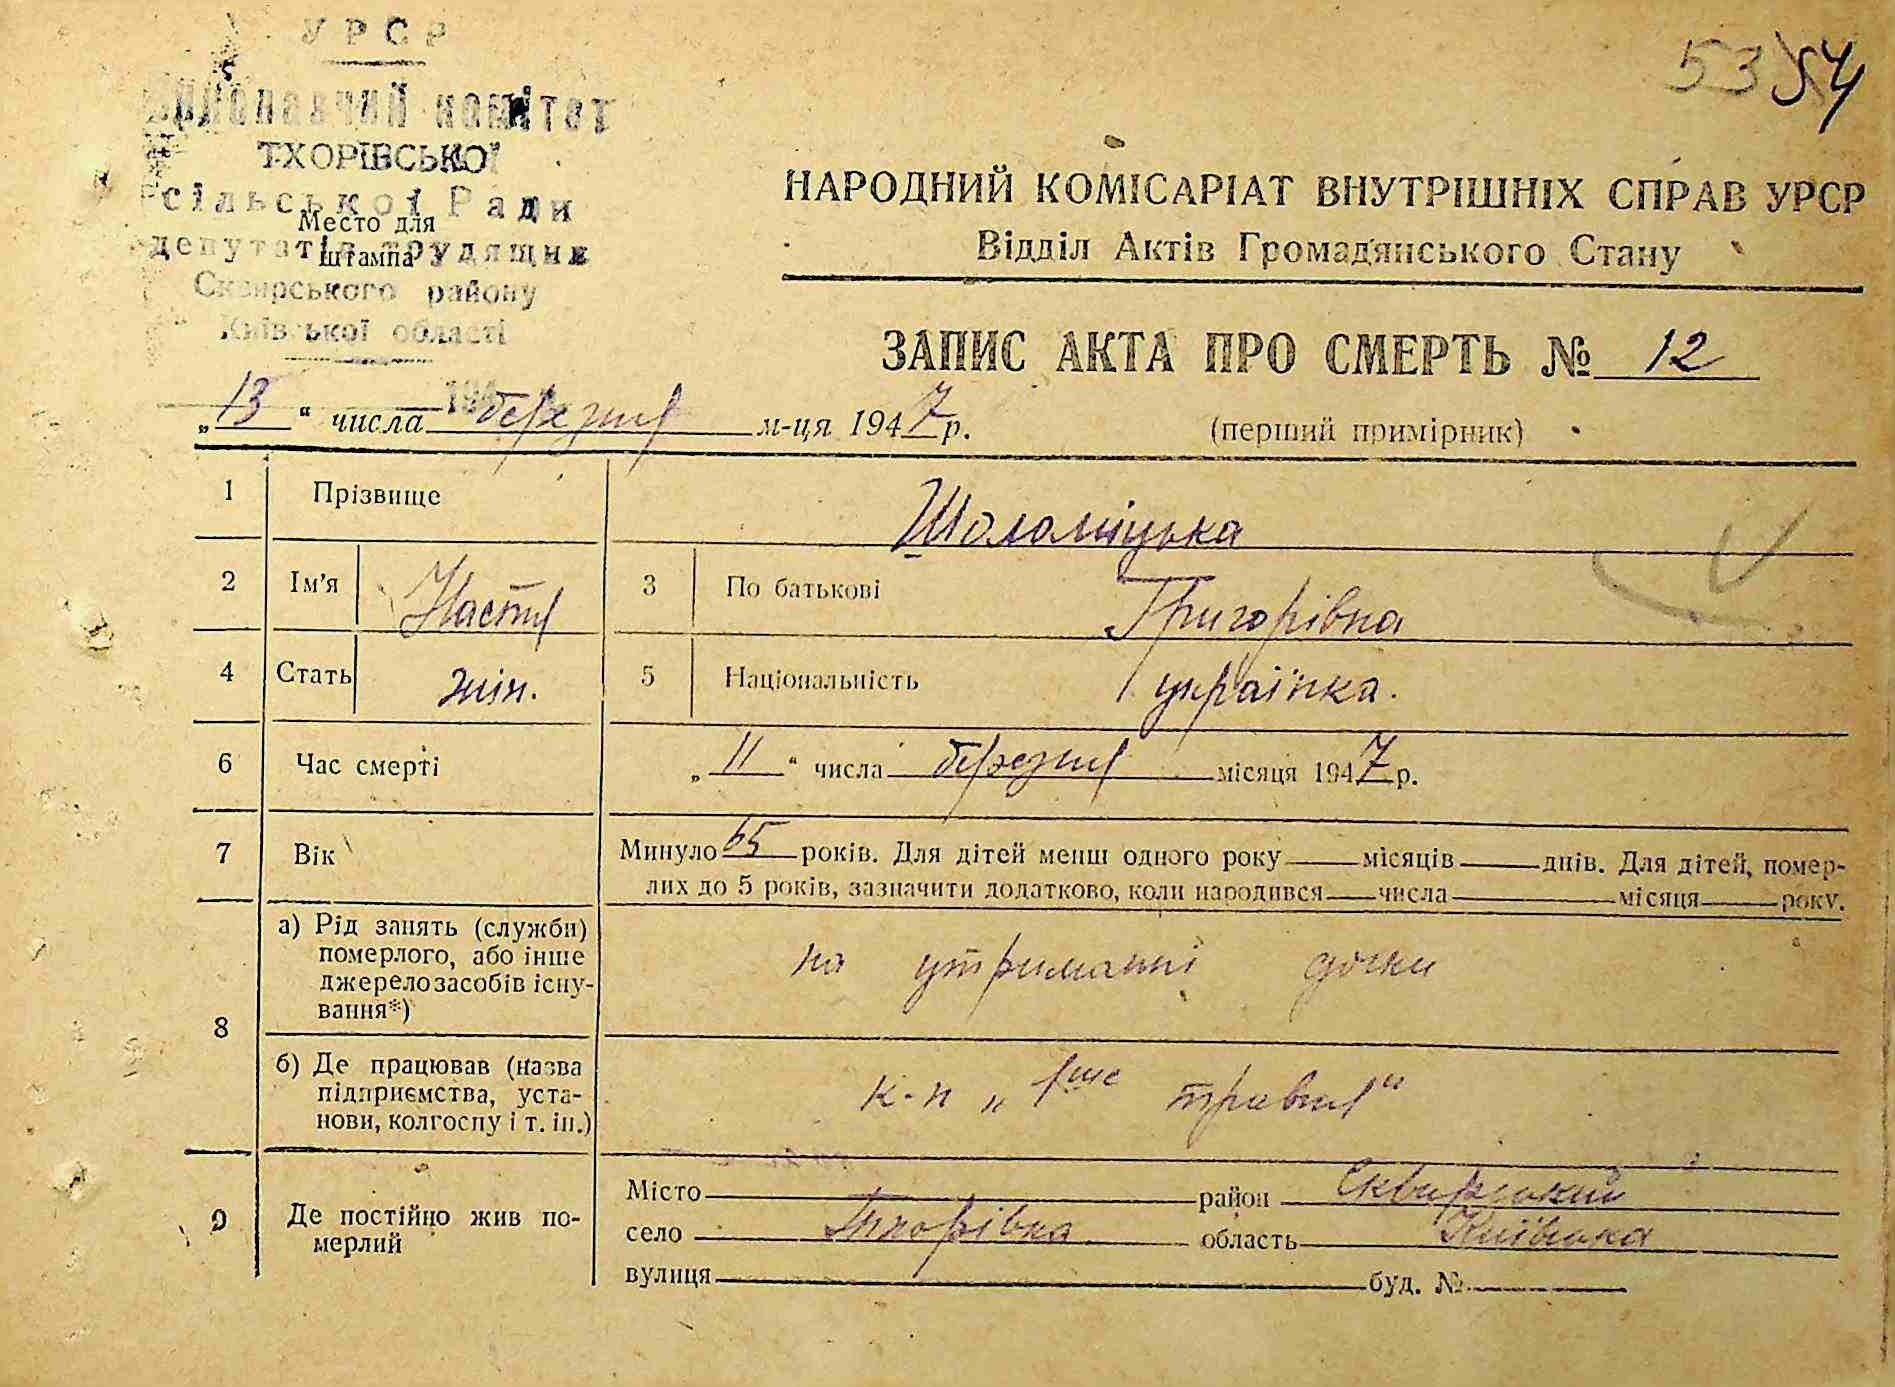 УРСР
Виконавчий комітет
ТХОРІВСЬКОЇ
сільської Ради
Место для
депутатів трудящих
штампа
Сквирського району
Київської області
53 54
НАРОДНИЙ КОМІСАРІАТ ВНУТРІШНІХ СПРАВ УРСР
Відділ Актів Громадянського Стану
ЗАПИС АКТА ПРО СМЕРТЬ № 12
„13“ числа березня м-ця 1947 р.
(перший примірник)
1 Прізвище Шоломіцька
2 Ім'я Настя 3 По батькові Григорівна
4 Стать жін. 5 Національність українка.
6 Час смерті „11“ числа березня місяця 1947 р.
7 Вік Минуло 65 років. Для дітей менш одного року місяців днів. Для дітей, помер-
лих до 5 років, зазначити додатково, коли народився числа місяця року.
8 а) Рід занять (служби)
померлого, або інше
джерело засобів існу-
вання*)
на утриманні дочки
б) Де працював (назва
підприємства, уста-
нови, колгоспу і т. ін.)
к-п „1ше травня"
9 Де постійно жив по-
мерлий
Місто район Сквирський
село Тхорівка область Київська
вулиця буд. №